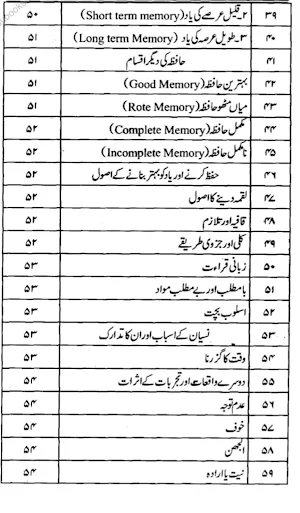 ۳۹ ۲۔ قلیل عرصے کی یاد (Short term memory) ۵۰
۴۰ ۳۔ طویل عرصہ کی یاد (Long term Memory) ۵۱
۴۱ حافظہ کی دیگر اقسام ۵۱
۴۲ بہترین حافظہ (Good Memory) ۵۱
۴۳ میاں مٹھو حافظہ (Rote Memory) ۵۱
۴۴ مکمل حافظہ (Complete Memory) ۵۲
۴۵ نامکمل حافظہ (Incomplete Memory) ۵۲
۴۶ حفظ کرنے اور یاد کو بہتر بنانے کے اصول ۵۲
۴۷ لقمہ دینے کا اصول ۵۲
۴۸ قافیہ اور تلازم ۵۲
۴۹ کلی اور جزوی طریقے ۵۲
۵۰ زبانی قراءت ۵۳
۵۱ بامطلب اور بے مطلب مواد ۵۳
۵۲ اسلوب بچت ۵۳
۵۳ نسیان کے اسباب اور ان کا تدارک ۵۳
۵۴ وقت کا گزرنا ۵۳
۵۵ دوسرے واقعات اور تجربات کے اثرات ۵۴
۵۶ عدم توجہ ۵۴
۵۷ خوف ۵۴
۵۸ الجھن ۵۴
۵۹ نیت یا ارادہ ۵۴